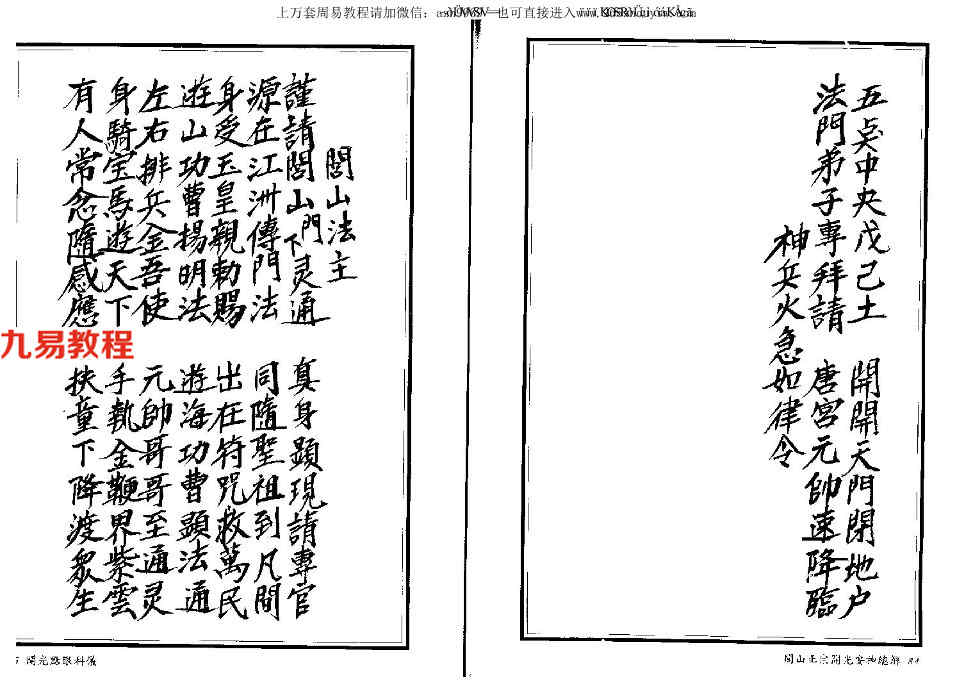 上万套周易教程请加微信：
也可直接进入
五点中央戊己土　開開天門閉地户
法門弟子專拜請　唐宮元帥速降臨
神兵火急如律令
閭山正宗開光安神總解
閭山法主
謹請閭山門下灵通　真身顕現請專官
源在江洲傳門法　同隨聖祖到凡間
身受玉皇親勅賜　出在符咒救萬民
遊山功曹揚明法　遊海功曹顕法通
左右排兵金吾使　元帥哥哥至通灵
身騎宝馬遊天下　手執金鞭界紫雲
有人常念隨感應　扶童下降渡衆生
開光點眼科儀
九易教程